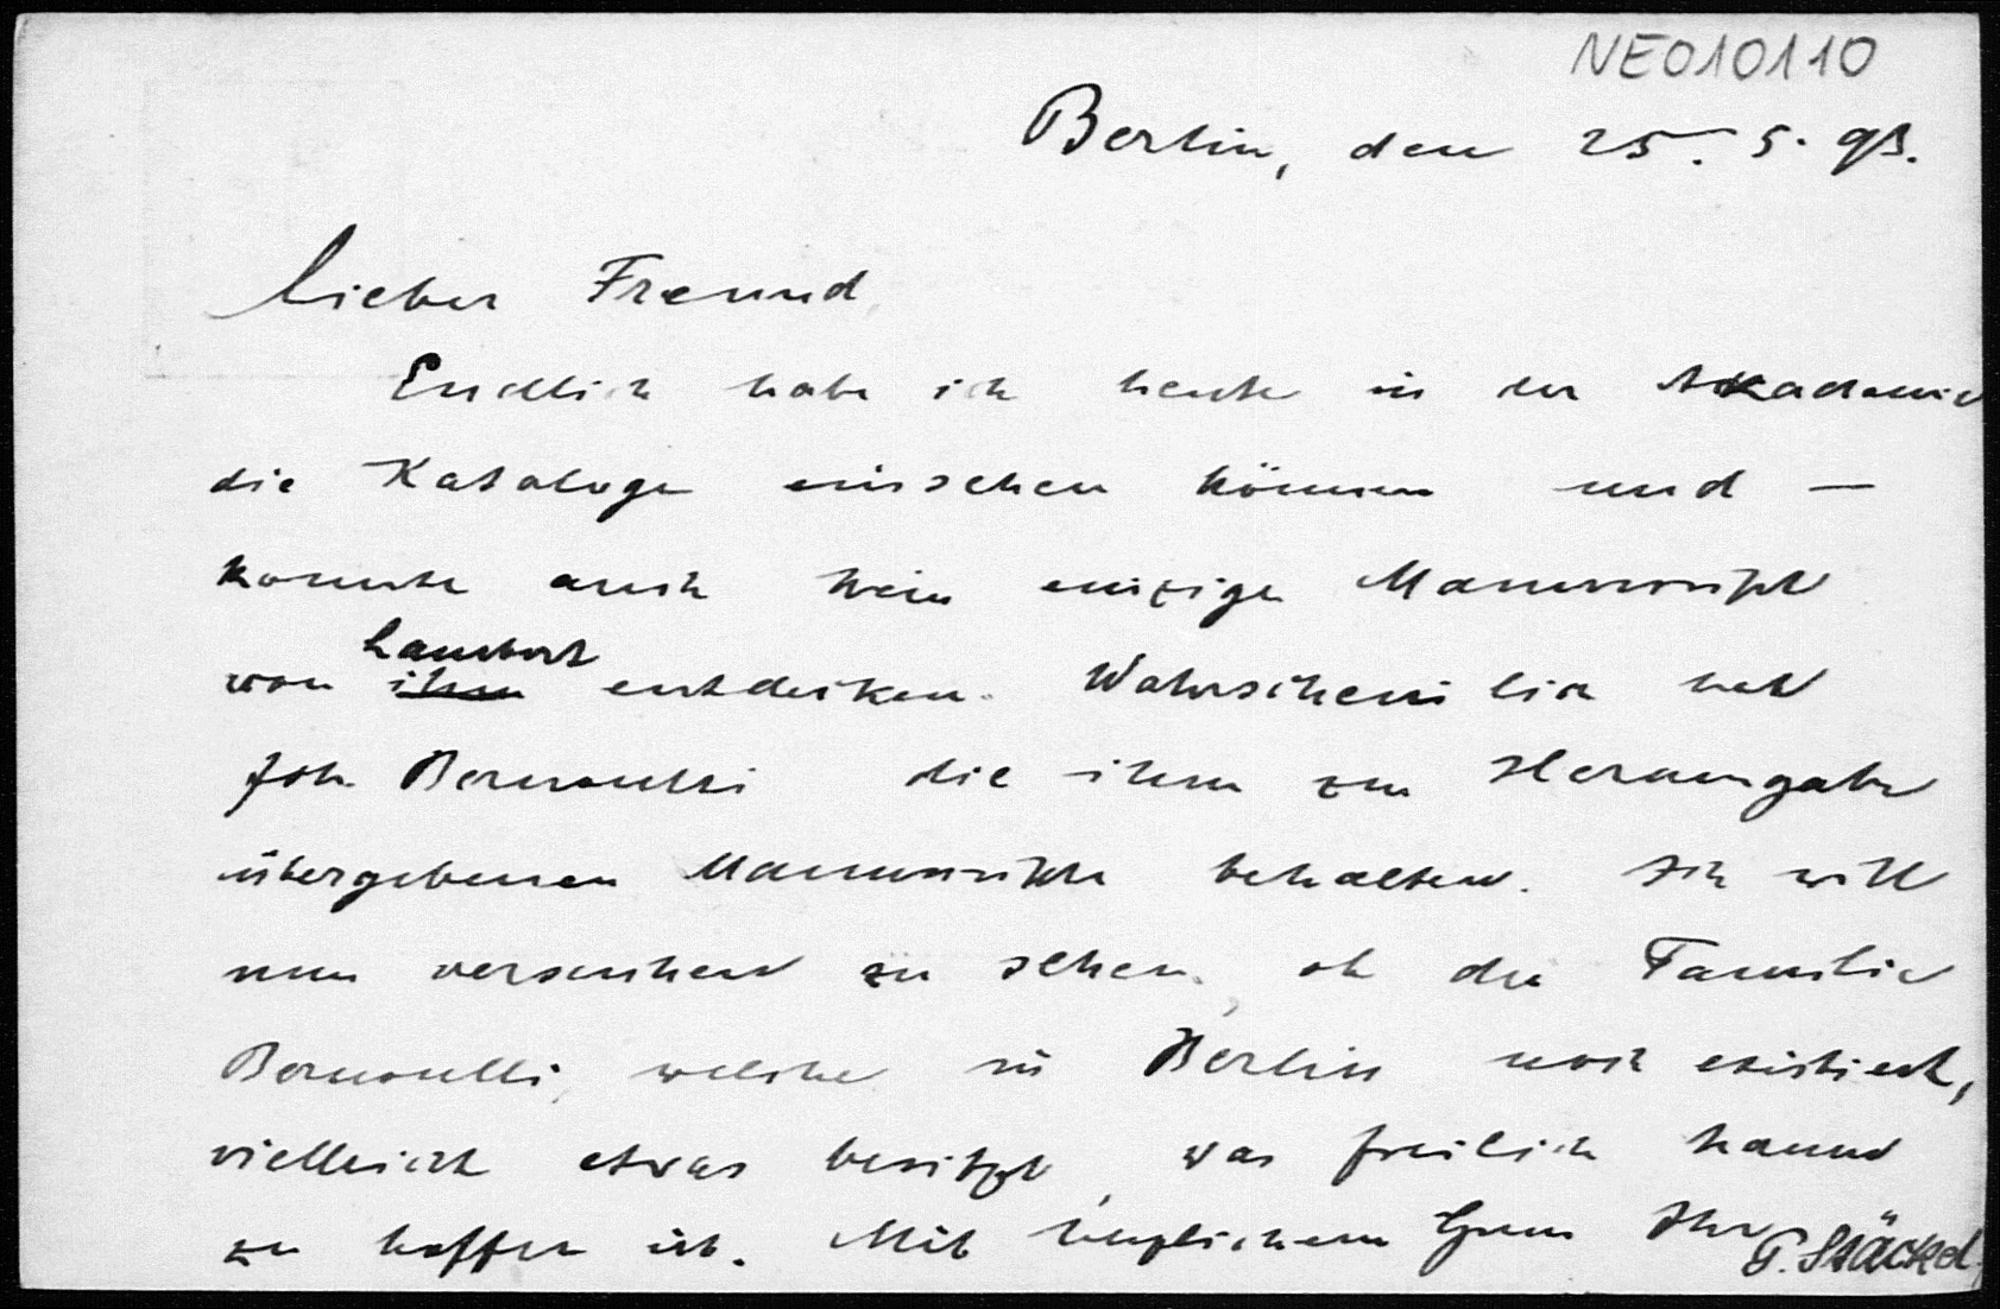 NE010110
Berlin, den 25. 5. 93.
Lieber Freund,
Endlich habe ich heute in der Akademie
die Kataloge einsehen können und —
konnte auch kein einziges Manuscript
von ihm Lambert entdecken. Wahrscheinlich hat
Joh. Bernoulli die ihm zur Herausgabe
übergebenen Manuscripte behalten. Ich will
nun versuchen zu sehen, ob die Familie
Bernoulli, welche in Berlin noch existiert,
vielleicht etwas besitzt, was freilich kaum
zu hoffen ist. Mit herzlichem Gruss Ihr P. Stäckel.